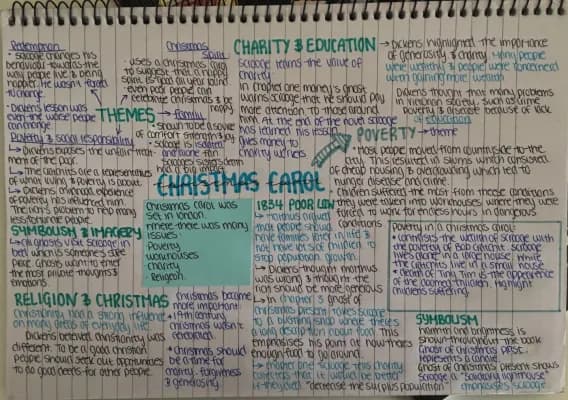 Redemption
• Scrooge changes his
behaviour towards the
way people live & being
happier. He wasn't forced
to change
• Dickens lesson was
even the worse people
can change
THEMES
Poverty & social responsibility
↳ Dickens exposes the unfair treat-
ment of the poor.
↳ The Cratchits are a representatives
of what living & poverty is about.
↳ Dickens childhood experience
of poverty has influenced him.
The rich's problem to help many
less fortunate people.
SYMBOLISM & IMAGERY
↳ All ghosts visit Scrooge in
bed which is someone's safe
place. Ghosts want to enter
the most private thoughts &
emotions.
RELIGION & CHRISTMAS
Christianity had a strong influence
on many areas of everyday life.
Dickens believed Christianity was
different. To be a good Christian
people should seek out opportunities
to do good deeds for other people.
Christmas
Spirit
• Uses a Christmas song
to suggest that a happy
spirit is good all year round
• even poor people can
celebrate Christmas & be
happy
Family
• Shown to be a source
of comfort, strength & joy
• Scrooge is isolated
and alone. Fan
Scrooges sister
CHRISTMAS CAROL
Christmas Carol was
set in London.
There was many
issues:
• Poverty
• Workhouses
• Charity
• Religion.
Christmas became
more important
19th century
Christmas wasn't
• Christmas should
be a time for
charity, forgiveness
& generosity.
CHARITY & EDUCATION
Scrooge learns the value of
charity
In chapter one Marley's ghost
warns Scrooge that he should pay
more attention to those around
him. At the end of the novel Scrooge
has learned his lesson
gives money to
charity workers
→ Dickens highlighted the importance
of generosity & charity. Many people
were wealthy & people were concerned
with gaining more wealth
Dickens thought that many problems
in Victorian society, such as crime
poverty & disease because of lack
of education
POVERTY → theme
• Most people moved from countryside to the
city. This resulted in slums which consisted
of cheap housing & overcrowding which led to
hunger, disease and crime.
• Children suffered the most from these conditions
they were taken into workhouses where they were
forced to work for endless hours in dangerous
conditions
1834 POOR LAW
↳ Malthus argued
that people should
have families later in life &
not have lots of children to
stop population growth.
↳ Dickens thought Malthus
was wrong & thought the
rich should be more generous
↳ In chapter 3 ghost of
Christmas present takes Scrooge
to a bustling shop where there's
a long description about food. This
emphasises his point at how there's
enough food to go around.
↳ Chapter one Scrooge tells charity
collectors that it would be better
if they died "decrease the surplus population"
Poverty in A Christmas Carol:
• contrasts the wealth of Scrooge with
the poverty of Bob Cratchit. Scrooge
lives alone in a large house. While
the Cratchits live in a small house
• Death of tiny Tim & the appearance
of the doomed children. Highlight
childrens suffering.
SYMBOLISM
Warmth and brightness is
shown throughout the book
Ghost of Christmas past
represents a candle.
Ghost of Christmas present shows
Scrooge a "solitary lighthouse"